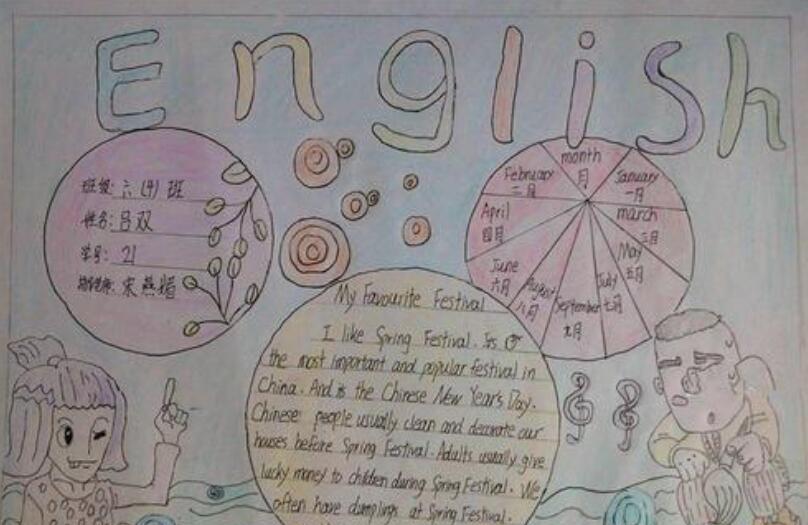 English
班级: 六 (4) 班
姓名: 吕双
学号: 21
指导老师: 宋燕娟
month
月
January
一月
February
二月
march
三月
April
四月
May
五月
June
六月
July
七月
August
八月
September
九月
My Favourite Festival
I like Spring Festival. Its
the most important and popular festival in
China. And is the Chinese New Year's Day.
Chinese people usually clean and decorate our
houses before Spring Festival. Adults usually give
lucky money to children during Spring Festival. We
often have dumplings at Spring Festival.